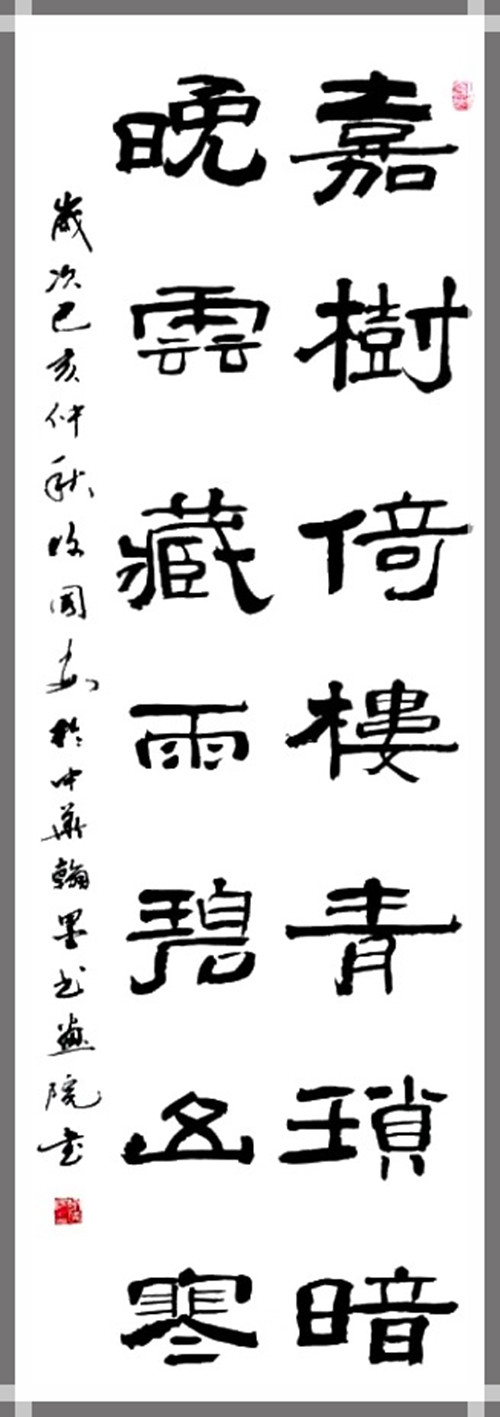 嘉樹倚樓青瑣暗
晚雲藏雨碧山寒
歲次己亥仲秋國於中華翰墨书畫院書